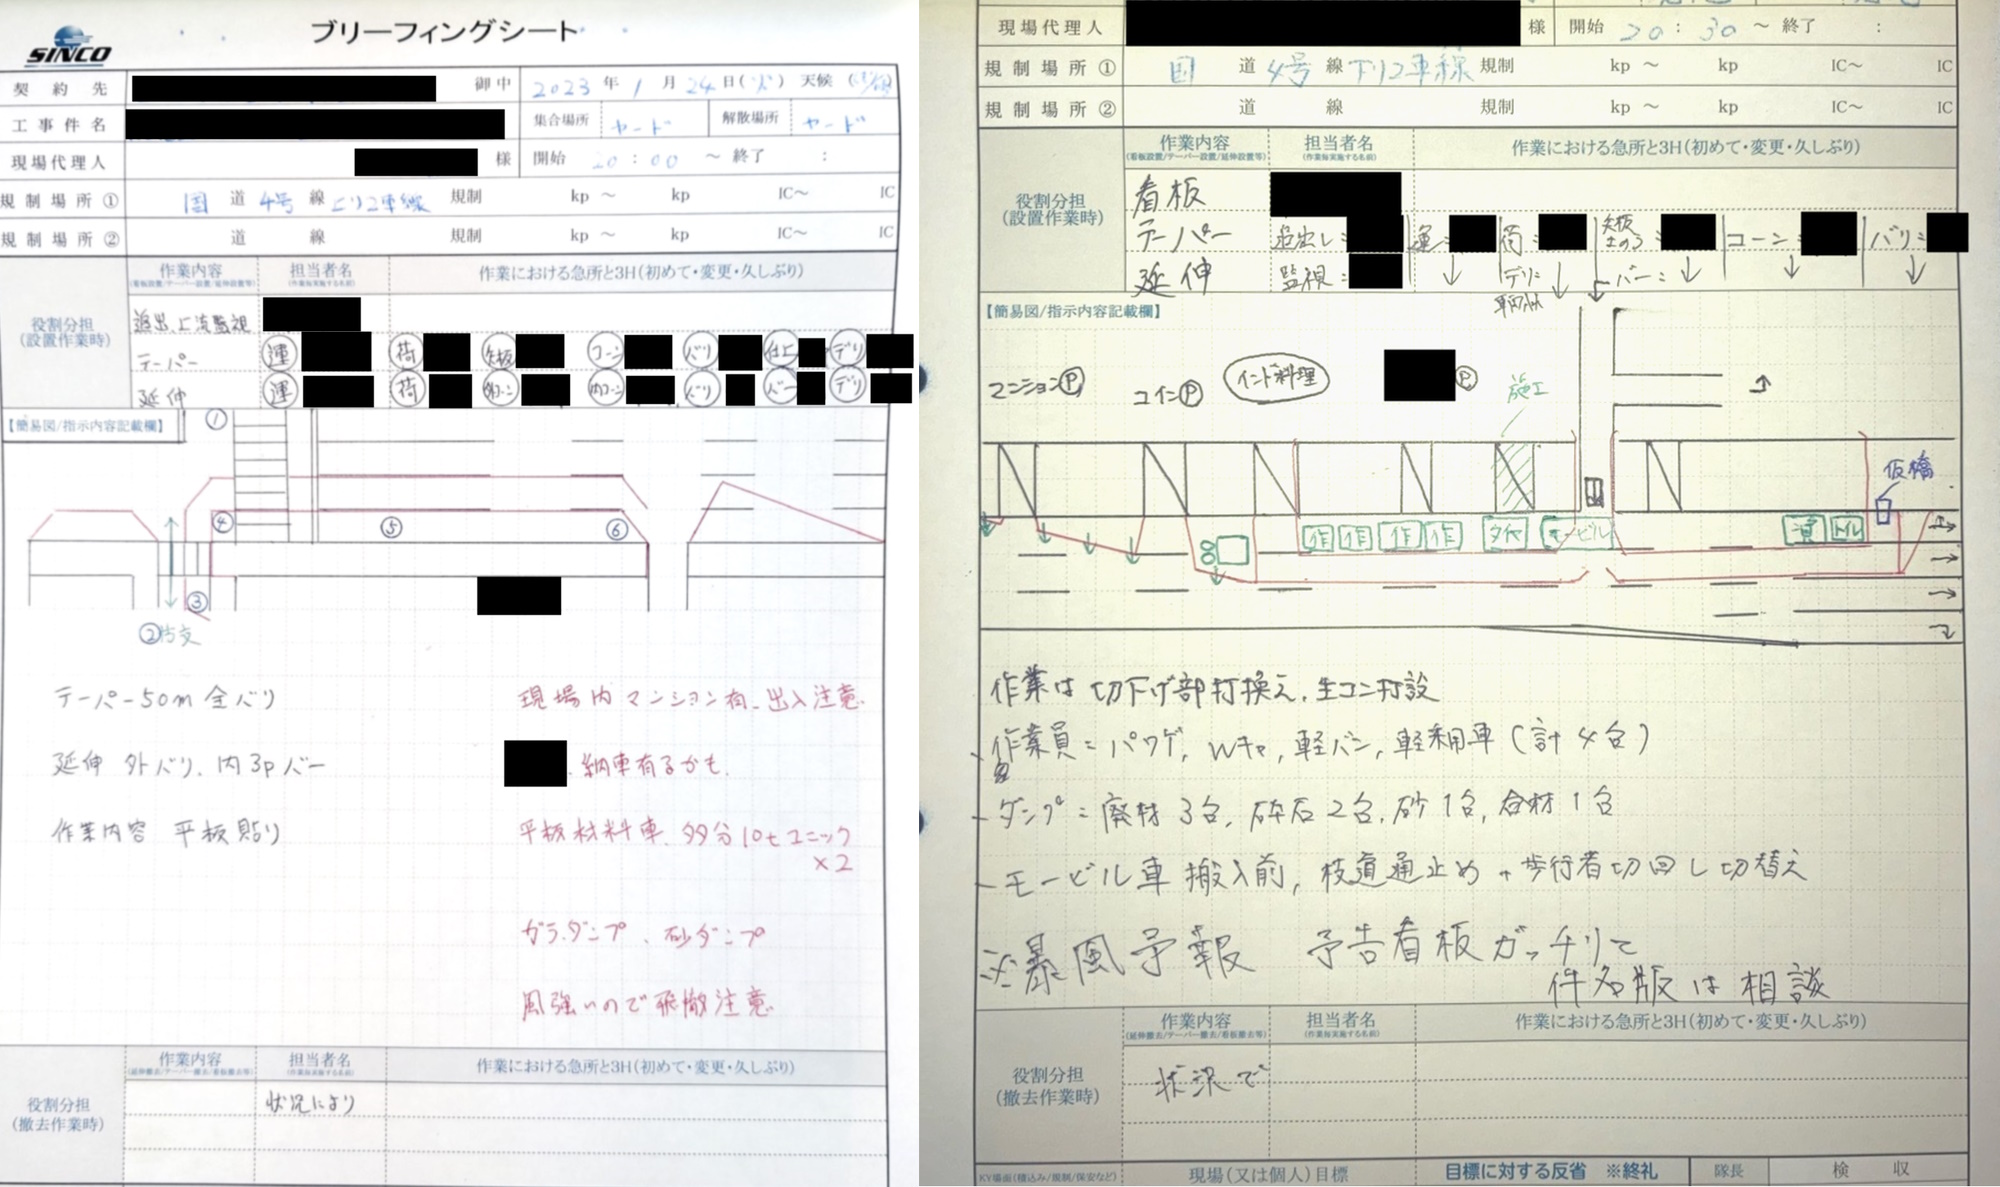 SINCO
ブリーフィングシート
契約先 御中 2023年1月24日(火) 天候
工事件名 集合場所 ヤード 解散場所 ヤード
現場代理人 様 開始 20:00 ～ 終了 :
規制場所① 国道4号線上り2車線規制 kp～ kp IC～ IC
規制場所② 道 線 規制 kp～ kp IC～ IC
作業内容 担当者名 作業における急所と3H(初めて・変更・久しぶり)
(看板設置/テーパー設置/延伸設置等) (作業毎実施する名前)
役割分担
(設置作業時)
追出、上流監視
テーパー 運 荷 矢板 コーン バリ 仕上 デリ
延伸 運 荷 外コーン 内コーン バリ バー デリ
【簡易図/指示内容記載欄】
①
④ ⑤ ⑥
③
②
テーパー50m 全バリ
延伸 外バリ、内3Pバー
作業内容 平板貼り
現場内マンション有、出入注意
納車有るかも、
平板材料車、多分10tユニック
×2
ガラダンプ、砂ダンプ
風強いので飛散注意
作業内容 担当者名 作業における急所と3H(初めて・変更・久しぶり)
(延伸撤去/テーパー撤去/看板撤去等) (作業毎実施する名前)
役割分担
(撤去作業時)
状況により
現場代理人 様 開始 20:30 ～ 終了 :
規制場所① 国道4号線下り2車線規制 kp～ kp IC～ IC
規制場所② 道 線 規制 kp～ kp IC～ IC
作業内容 担当者名 作業における急所と3H(初めて・変更・久しぶり)
(看板設置/テーパー設置/延伸設置等) (作業毎実施する名前)
役割分担
(設置作業時)
看板
テーパー 追出し: 運: 荷: 矢板 土のう: コーン: バリ:
延伸 監視: ↓ デリ: ↓ バー: ↓ ↓ ↓
【簡易図/指示内容記載欄】
マンションⓅ コインⓅ インド料理 Ⓟ 施工
仮橋
作 作 作 作 モービル トイレ
作業は切下げ部打換え、生コン打設
作業員=パワゲ、Wキャ、軽バン、軽乗用車(計4台)
ダンプ=廃材3台、砕石2台、砂1台、合材1台
モービル車搬入前、枝道通止め+歩行者切回し切替え
※暴風予報 予告看板ガッチリて
件名版は相談
作業内容 担当者名 作業における急所と3H(初めて・変更・久しぶり)
(延伸撤去/テーパー撤去/看板撤去等) (作業毎実施する名前)
役割分担
(撤去作業時)
状況で
KY場面(積込み/規制/保安など) 現場(又は個人)目標 目標に対する反省 ※終礼 隊長 検収